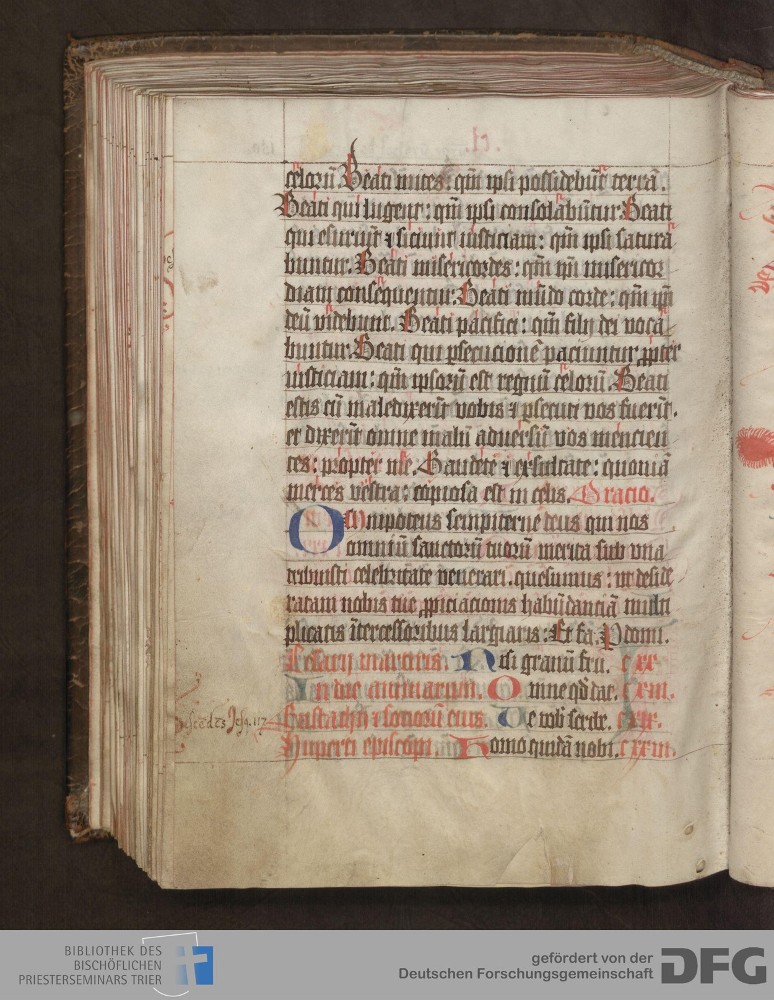 celorū. Beati mites: qm̄ ipsi possidebūt terrā.
Beati qui lugent: qm̄ ipsi consolabūtur. Beati
qui esuriūt ⁊ siciunt iusticiam: qm̄ ipsi saturā
buntur. Beati misericordes: qm̄ ip̄i misericor
diam consequentur. Beati mūdo corde: qm̄ ip̄i
deū videbunt. Beati pacifici: qm̄ filij dei vocā
buntur. Beati qui ꝑsecucionē paciuntur ꝓpter
iusticiam: qm̄ ipsorū est regnū celorū. Beati
estis cū maledixerīt vobis ⁊ ꝑsecuti vos fuerīt.
et dixerīt omne malū aduersū vos mencien
tes: propter me. Gaudete ⁊ exsultate: quoniā
merces vestra: copiosa est in celis. Oracio.
Omnipotens sempiterne deus qui nos
omniū sanctorū tuorū merita sub vna
tribuisti celebritate venerari. quesumus: vt deside
ratam nobis tue ꝓpiciacionis habūdanciā multi
plicatis ītercessoribus largiaris: Et fa. P domi.
Cesarij martiris. Nisi granū fru. cxx
In die animarum. Omne qd̄ dat. cxxi.
Eustachij ⁊ sociorū eius. Ve vob̄ scribe.
Huperti episcopi. Homo quidā nobi. cxxiii.
cl.
BIBLIOTHEK DES
BISCHÖFLICHEN
PRIESTERSEMINARS TRIER
gefördert von der
Deutschen Forschungsgemeinschaft
DFG